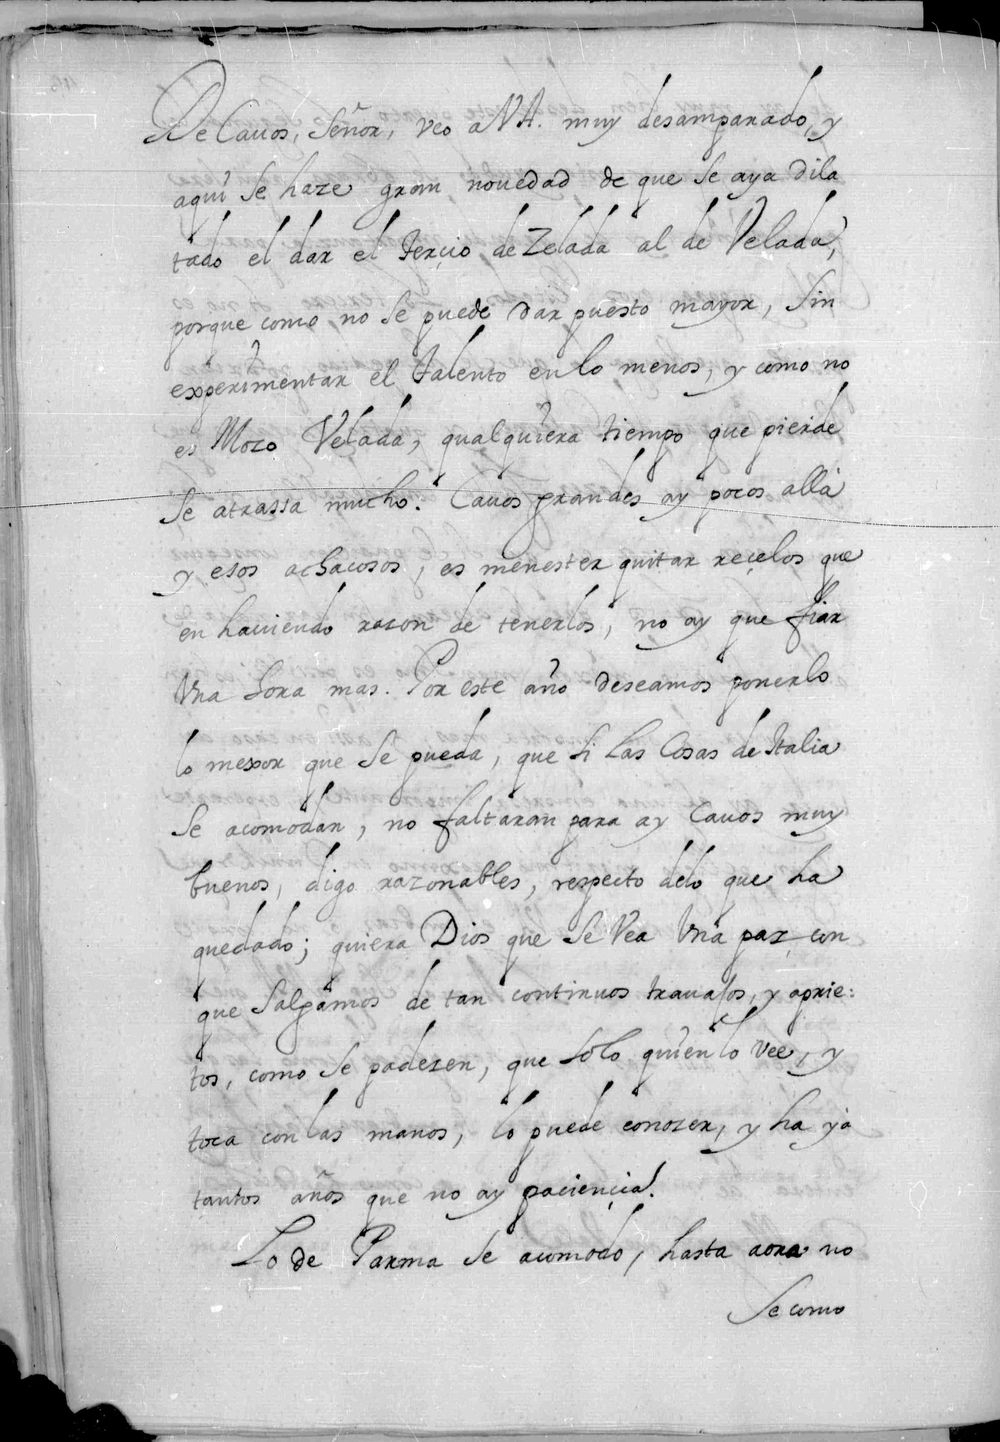 De Cauos, Señor, veo a VA. muy desamparado, y
aqui se haze gran nouedad de que se aya dila
tado el dar el Terçio de Zelada al de Velada,
porque como no se puede dar puesto mayor, sin
experimentar el Talento en lo menos, y como no
es Mozo Velada, qualquiera tiempo que pierde
se atrassa mucho. Cauos grandes ay pocos allà
y esos achacosos, es menester quitar reçelos que
en hauiendo razon de tenerlos, no ay que fiar
Vna hora mas. Por este año deseamos ponerlo
lo mexor que se pueda, que si las Cosas de Italia
se acomodan, no faltaran para ay Cauos muy
buenos, digo razonables, respecto delo que ha
quedado; quiera Dios que se Vea Vna paz con
que salgamos de tan continuos trauajos, y aprie:
tos, como se padezen, que solo quien lo vee, y
toca con las manos, lo puede conozer, y ha ya
tantos años que no ay paciençia.
Lo de Parma se acomodò, hasta aora no
se como